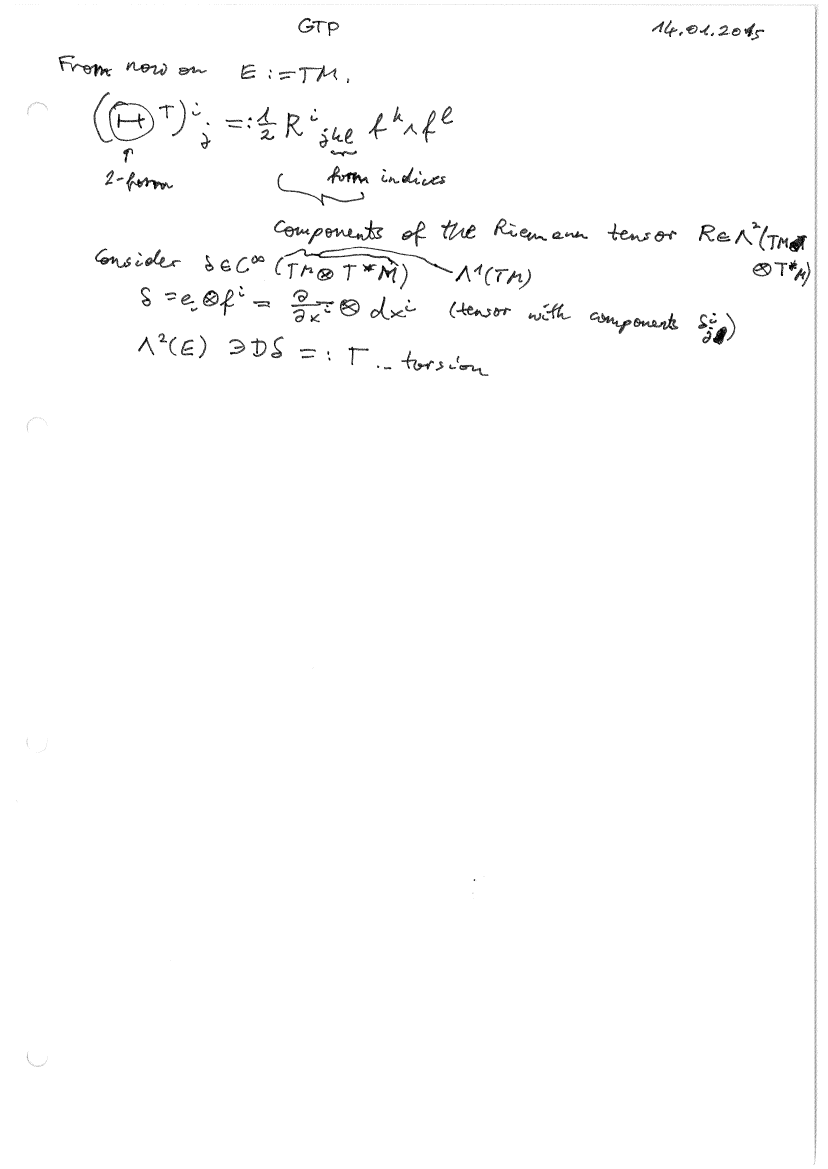 GTP 14.01.2015
From now on E := TM.
(Θ^T)^i_j =: 1/2 R^i_{jkl} f^k ∧ f^l
↑
2-form form indices
Components of the Riemann tensor R ∈ Λ²(TM ⊗ T*M)
Consider δ ∈ C^∞(TM ⊗ T*M) Λ¹(TM)
δ = e_i ⊗ f^i = ∂/∂x^i ⊗ dx^i (tensor with components δ^i_j)
Λ²(E) ∋ Dδ =: T .. torsion